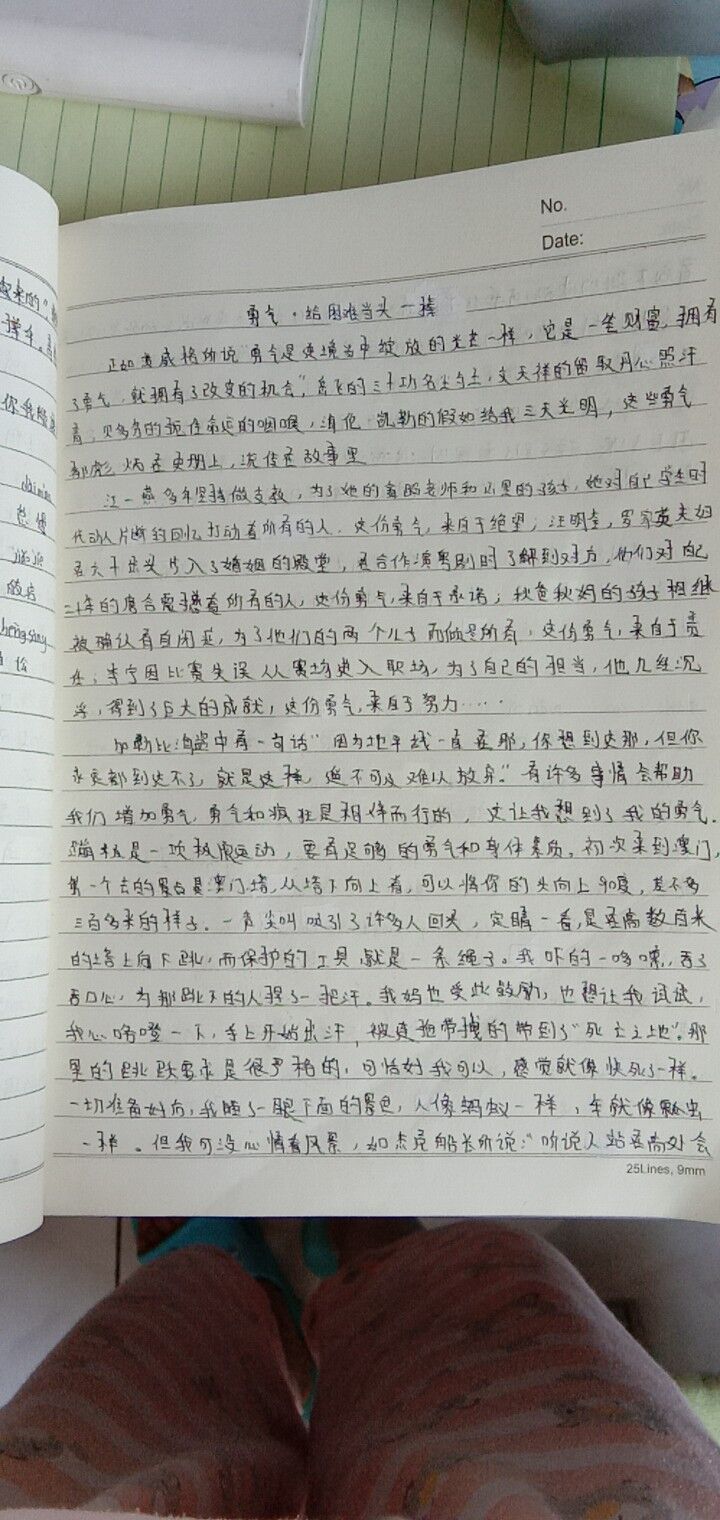 No.
Date:
勇气·给困难当头一棒
正如海威格所说"勇气是逆境当中绽放的光芒一样,它是一笔财富,拥有
了勇气,就拥有了改变的机会",岳飞的三十功名尘与土,文天祥的留取丹心照汗
青,贝多芬的扼住命运的咽喉,海伦·凯勒的假如给我三天光明,这些勇气
都彪炳在史册上,流传在故事里
江一燕多年坚持做支教,为了她的舞蹈老师和山里的孩子,她对自己学生时
代动人片断的回忆打动着所有的人,这份勇气,来自于绝望;汪明荃,罗家英夫妇
在六十出头步入了婚姻的殿堂,在合作演粤剧时了解到对方,他们对自己
二十年的磨合震撼着所有的人,这份勇气,来自于承诺;秋爸秋妈的孩子相继
被确认有自闭症,为了他们的两个儿子而倾尽所有,这份勇气,来自于责
任;李宁因比赛失误从赛场走入职场,为了自己的担当,他几经沉
浮,得到了巨大的成就,这份勇气,来自于努力……
加勒比海盗中有一句话"因为地平线一直在那,你想到达那,但你
永远都到达不了,就是这样,遥不可及难以放弃."有许多事情会帮助
我们增加勇气,勇气和疯狂是相伴而行的,这让我想到了我的勇气.
蹦极是一项极限运动,要有足够的勇气和身体素质,初次来到澳门,
第一个去的景点是澳门塔,从塔下向上看,可以将你的头向上90度,差不多
三百多米的样子.一声尖叫吸引了许多人回头,定睛一看,是在离数百米
的塔上向下跳,而保护的工具就是一条绳子。我吓的一哆嗦,吞了
吞口水,为那跳下的人捏了一把汗。我妈也受此鼓励,也想让我试试,
我心咯噔一下,手上开始出汗,被连拖带拽的带到了"死亡之地".那
里的跳跃要求是很严格的,可恰好我可以,感觉就像快死了一样。
一切准备好后,我瞄了一眼下面的景色,人像蚂蚁一样,车就像瓢虫
一样。但我可没心情看风景,如杰克船长所说:"听说人站在高处会
25Lines, 9mm